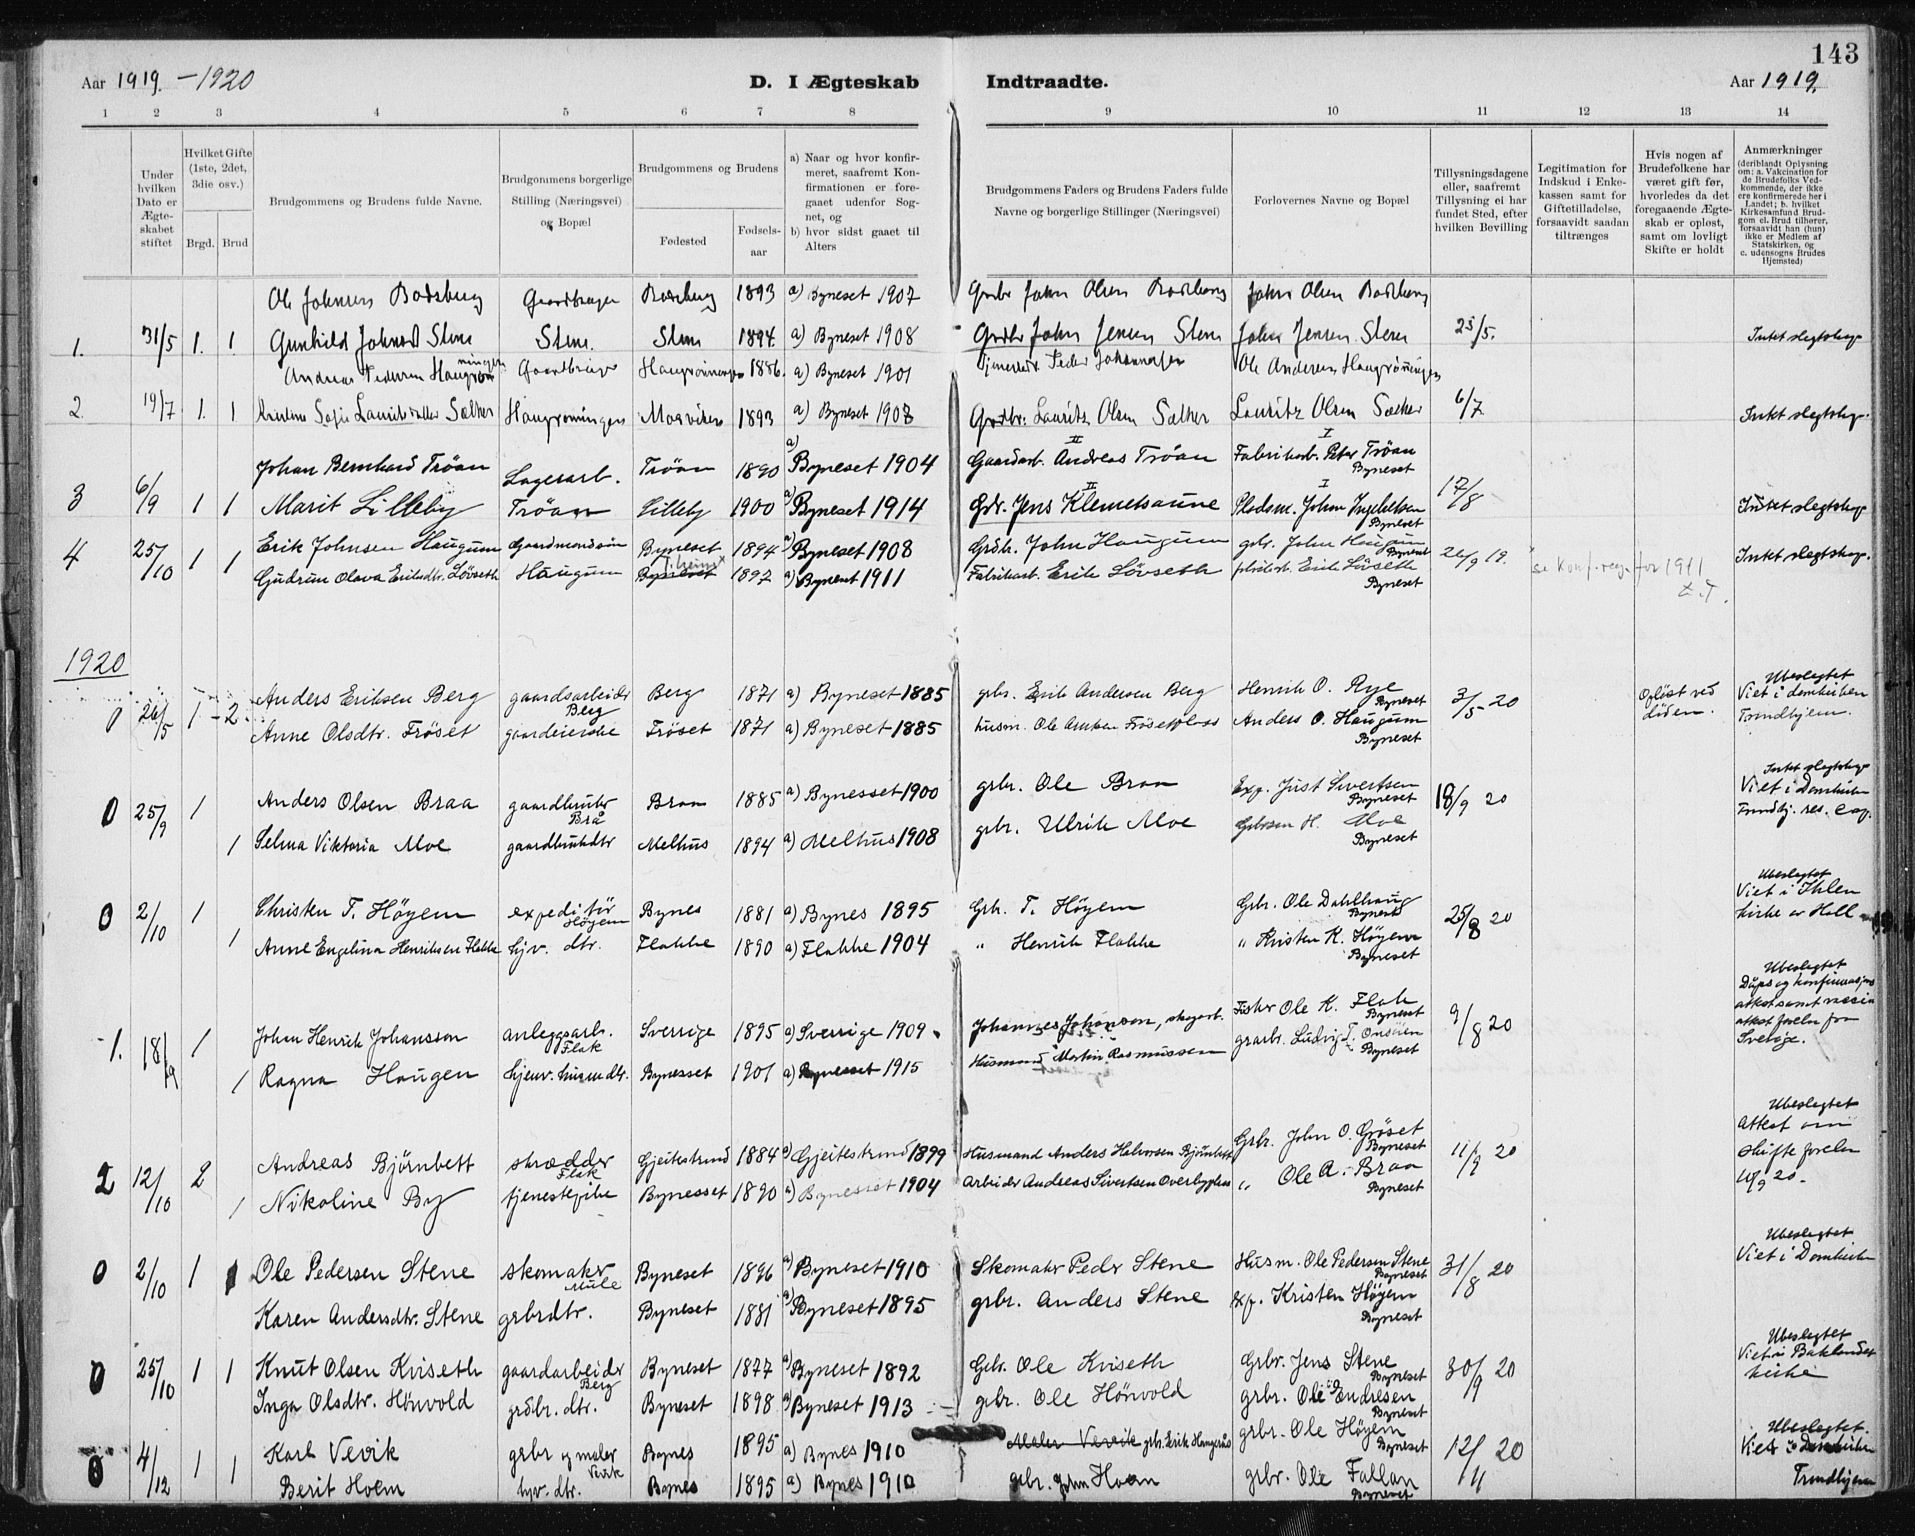 143
Aar 1919 – 1920 D. I Ægteskab Indtraadte. Aar 1919.
1 2 3 4 5 6 7 8 9 10 11 12 13 14
Under hvilken Dato er Ægteskabet stiftet
Hvilket Gifte (1ste, 2det, 3die osv.)
Brgd. Brud
Brudgommens og Brudens fulde Navne.
Brudgommens borgerlige Stilling (Næringsvei) og Bopæl
Brudgommens og Brudens
Fødested Fødselsaar
a) Naar og hvor konfirmeret, saafremt Konfirmationen er foregaaet udenfor Sognet, og
b) hvor sidst gaaet til Alters
Brudgommens Faders og Brudens Faders fulde Navne og borgerlige Stillinger (Næringsvei)
Forlovernes Navne og Bopæl
Tillysningsdagene eller, saafremt Tillysning ei har fundet Sted, efter hvilken Bevilling
Legitimation for Indskud i Enkekassen samt for Giftetilladelse, forsaavidt saadan tiltrænges
Hvis nogen af Brudefolkene har været gift før, hvorledes da det foregaaende Ægteskab er opløst, samt om lovligt Skifte er holdt
Anmærkninger (deriblandt Oplysning om: a. Vakcination for de Brudefolks Vedkommende, der ikke ere konfirmerede her i Landet; b. hvilket Kirkesamfund Brudgom el. Brud tilhører, forsaavidt han (hun) ikke er Medlem af Statskirken, og c. udensogns Brudes Hjemsted)
Ole Johnsen Bodsberg Gaardbruger Bodsberg 1893 a) Byneset 1907 Grdbr John Olsen Bodsberg John Olsen Bodsberg
1. 31/5 1. 1 Gunhild Johnsd Stene Stene. Stene 1894. a) Byneset 1908 Grdbr John Jensen Stene John Jensen Stene 25/5. Intet slegtskap
Andreas Pedersen Haugrønningen Gaardbruger Haugrønningen 1886. a) Byneset 1901 Peder Johannesen Ole Andersen Haugrønningen
2. 19/7 1. 1 Kristine Sofie Lauritsdatter Sæther Haugrønningen Mosviken 1893 a) Byneset 1907 Grdbr. Lauritz Olsen Sæther Lauritz Olsen Sæther 6/7 Intet slegtskap.
Johan Bernhard Trøan Lagerarb. Trøan 1890 a) Byneset 1904 Gaardarb. Andreas Trøan II Fabrikarb. Peter Trøan I Byneset
3 6/9 1 1 Marit Lilleby Trøan Lilleby 1900 a) Byneset 1914 Gdr. Jens Klemetsaune II Pladsm. Johan Ingebrigtsen I Byneset 17/8 Intet slegtskap
4 25/10 1 1 Erik Johnsen Haugum Gaardmandssøn Byneset 1894 a) Byneset 1908 Grdb. John Haugum grb. John Haugum Byneset 26/9 19. Intet slegtskap.
Gudrun Olava Eriksdtr. Løvseth Haugum Byneset 1897 a) Byneset 1911 Fabrikarb. Erik Løvseth Erik Løvseth Byneset se konf.reg. for 1911
1920
0 26/5 1 – 2 Anders Eriksen Berg gaardsarbeider Berg Berg 1871 a) Byneset 1885 grbr. Erik Andersen Berg Henrik O. Rye Byneset 3/5 20 Opløst ved døden. Ubeslegtet Viet i domkirken Trondhjem.
Anne Olsdtr. Frøset gaardeierske Frøset 1871 a) Byneset 1885 husm. Ole Frøsetplass Anders O. Haugum Byneset
0 25/9 1 Anders Olsen Braa gaardbruker Brå Braa 1885 a) Bynesset 1900 grbr. Ole Braa Exp. Just Sivertsen Byneset 18/9 20 Intet slegtskap Viet i Domkirken Trondhj. res. cap.
1 Selma Viktoria Moe gaardbrukdtr Melhus 1894 a) Melhus 1908 grbr. Ulrik Moe H. Moe Byneset
0 2/10 1 Christen T. Høyem expeditør Høyem Bynes 1881 a) Bynes 1895 Grb. T. Høyem Grb. Ole Dahlhaug Byneset 25/8 20 Ubeslegtet Viet i Ihlen kirke av Hall
1 Anne Engelina Henriksen Flakke hjv. dtr. Flakke 1890 a) Flakke 1904 " Henrik Flakke " Kristen K. Høyem Byneset
1. 18/9 1 Johan Henrik Johansson anleggsarb. Flak Sverrige 1895 a) Sverrige 1909 Johannes Johanson, skogarb. Fisker Ole K. Flak Byneset 9/8 20 Ubeslegtet Dåps og konfirmasjons attest samt vaccin attest forelå fra Sverige.
1 Ragna Haugen hjemv. husm.dtr. Bynesset 1901 a) Bynesset 1915 Husmand Martin Rasmussen grarb. Ludvig T. Onsöien Byneset
2 12/10 2 Andreas Bjørnbett skrædder Flak Gjeitestrand 1884 a) Gjeitestrand 1899 Husmand Anders Halvorsen Bjørnbett Grbr. John O. Grøset Byneset 11/9 20 Ubeslegtet Attest om skifte forelå 10/9 20.
1 Nikoline By tjenestepike Bynesset 1890 a) Bynesset 1904 Arbeider Andreas Sivertsen Overbyplass " Ole A. Braa Byneset
0 2/10 1 1 Ole Pedersen Stene skomaker Mule Byneset 1896 a) Byneset 1910 Skomaker Peder Stene Husm. Ole Pedersen Stene Byneset 31/8 20 Ubeslegtet Viet i Domkirken
Karen Andersdtr. Stene grbrdtr. Byneset 1881 a) Byneset 1895 grbr. Anders Stene exp. Kristen Høyem Byneset
0 25/10 1 1 Knut Olsen Kviseth gaardarbeider Berg Byneset 1877 a) Byneset 1892 Grbr. Ole Kviseth Grbr. Jens Stene Byneset 30/9 20 Ubeslegtet Viet i Baklandet kirke
Inga Olsdtr. Hønvold grdbr. dtr. Byneset 1898 a) Byneset 1913 grbr. Ole Hønvold grbr. Ole Endresen Byneset
0 4/12 1 1 Karl Vevik grbr og maler Vevik Bynes 1895 a) Bynes 1910 Maler Vevik grb. Erik Haugerås grbr. Ole Høyem Byneset 12/11 20 Ubeslegtet. Viet i Domkirken Trondhjem
Berit Hoem hjv. dtr. Bynes 1895 a) Bynes 1910 grbr. John Hoem grbr. Ole Fallan Byneset